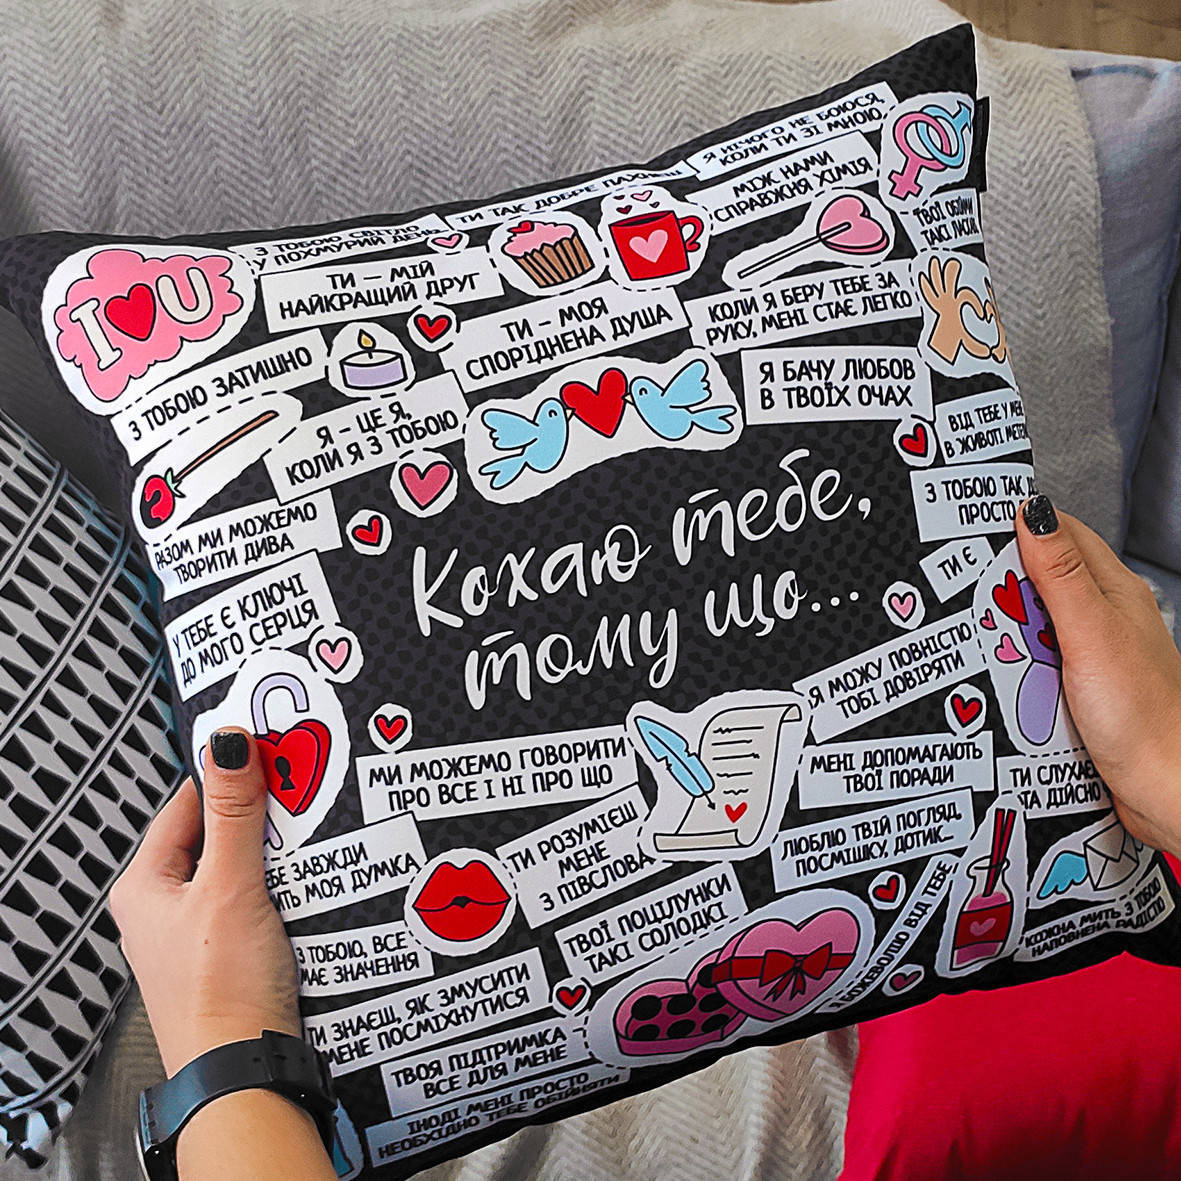 Я НІЧОГО НЕ БОЮСЯ,
КОЛИ ТИ ЗІ МНОЮ
ТИ ТАК ДОБРЕ ПАХНЕШ
МІЖ НАМИ
СПРАВЖНЯ ХІМІЯ
З ТОБОЮ СВІТЛО
У ПОХМУРИЙ ДЕНЬ
ТВОЇ ОБІЙМИ
ТАКІ
I U
ТИ – МІЙ
НАЙКРАЩИЙ ДРУГ
ТИ – МОЯ
СПОРІДНЕНА ДУША
КОЛИ Я БЕРУ ТЕБЕ ЗА
РУКУ, МЕНІ СТАЄ ЛЕГКО
З ТОБОЮ ЗАТИШНО
Я БАЧУ ЛЮБОВ
В ТВОЇХ ОЧАХ
Я – ЦЕ Я,
КОЛИ Я З ТОБОЮ
ВІД ТЕБЕ У МЕНЕ
В ЖИВОТІ
З ТОБОЮ ТАК
ПРОСТО
РАЗОМ МИ МОЖЕМО
ТВОРИТИ ДИВА
Кохаю тебе,
тому що...
ТИ Є
У ТЕБЕ Є КЛЮЧІ
ДО МОГО СЕРЦЯ
Я МОЖУ ПОВНІСТЮ
ТОБІ ДОВІРЯТИ
МИ МОЖЕМО ГОВОРИТИ
ПРО ВСЕ І НІ ПРО ЩО
МЕНІ ДОПОМАГАЮТЬ
ТВОЇ ПОРАДИ
ТИ СЛУХАЄ
ТА ДІЙСНО
ТИ РОЗУМІЄШ
МЕНЕ
З ПІВСЛОВА
ЛЮБЛЮ ТВІЙ ПОГЛЯД,
ПОСМІШКУ, ДОТИК...
ЗАВЖДИ
МОЯ ДУМКА
З ТОБОЮ, ВСЕ
МАЄ ЗНАЧЕННЯ
ТВОЇ ПОЦІЛУНКИ
ТАКІ СОЛОДКІ
Я БОЖЕВОЛІЮ ВІД ТЕБЕ
КОЖНА МИТЬ З ТОБОЮ
НАПОВНЕНА РАДІСТЮ
ТИ ЗНАЄШ, ЯК ЗМУСИТИ
МЕНЕ ПОСМІХНУТИСЯ
ТВОЯ ПІДТРИМКА
ВСЕ ДЛЯ МЕНЕ
ІНОДІ МЕНІ ПРОСТО
НЕОБХІДНО ТЕБЕ ОБІЙНЯТИ